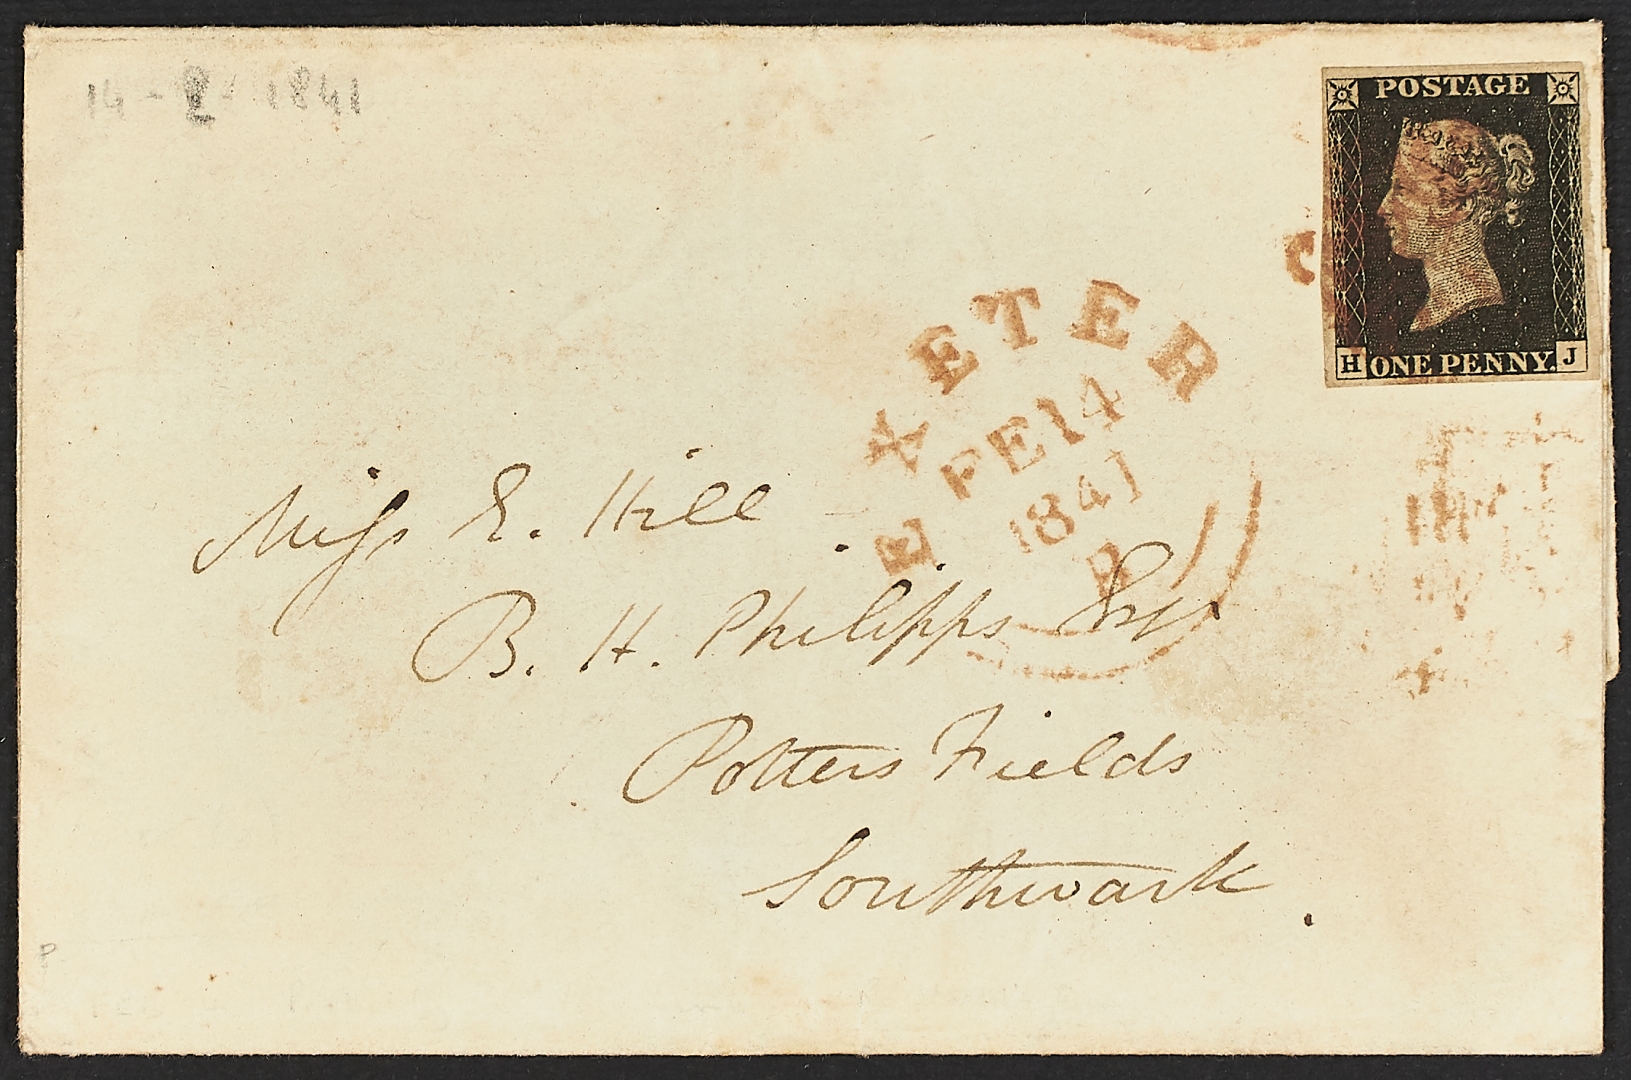 14 - 2 - 1841
POSTAGE
H ONE PENNY. J
EXETER
FE 14
1841
Miss E. Hill
B. H. Philipps Esqr
Potters Fields
Southwark.
P